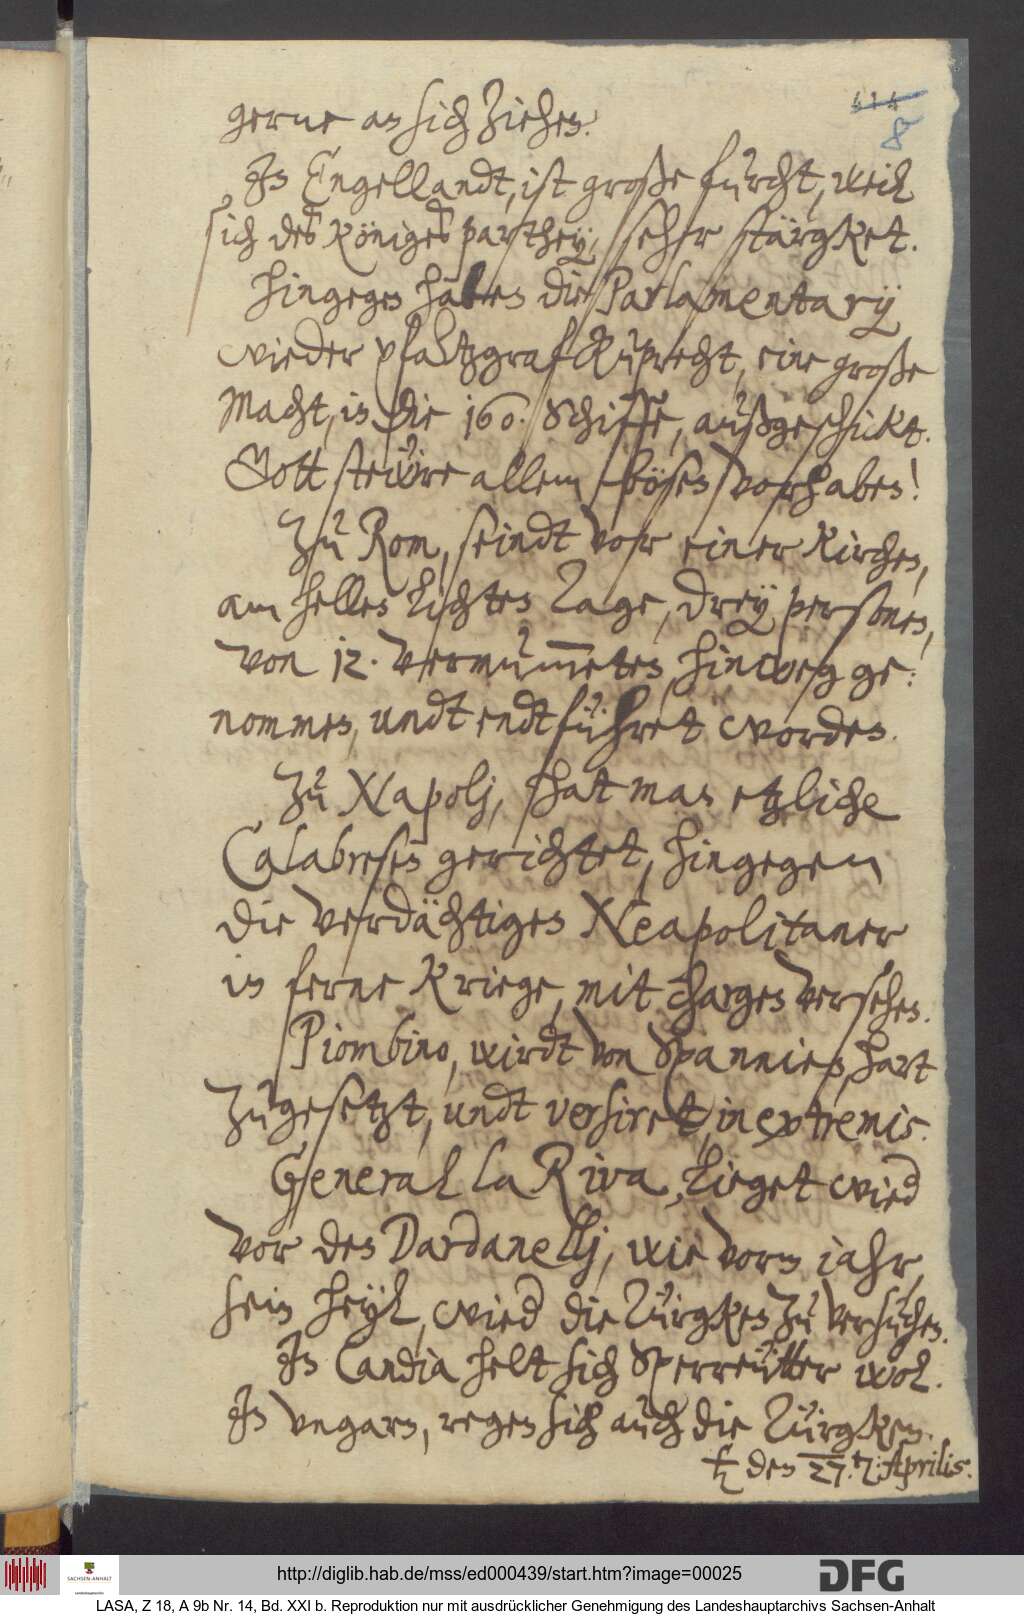 414
8
gerne an sich ziehen.
In Engellandt, ist große furcht, weil
sich des Königes parthey, sehr stärgket.
Hingegen haben die Parlamentarij
wieder Pfaltzgraf Ruprecht, eine große
Macht, in die 160. Schiffe, außgeschickt.
Gott stewre allem bösen vorhaben!
Zu Rom, seindt vor einer Kirchen,
am hellen lichten Tage, drey personen,
von 12. vermum̅eten, hinweg ge:
nommen, undt endtführet worden.
Zu Napolj, hat man etzliche
Calabresen gerichtet, hingegen
die verdächtigen Neapolitaner
in ferne Kriege, mit chargen versehen.
Piombino, wirdt von Spannien, hart
zugesetzt, undt versiret, in extremis.
General la Riva, lieget wied
vor den Dardanellj, wie vorm jahr,
sein heyl, wied die Türgken zu versuchen.
In Candia helt sich Sperreütter wol.
In Ungarn, regen sich auch die Türgken.
den 27. Aprilis.
http://diglib.hab.de/mss/ed000439/start.htm?image=00025
SACHSEN-ANHALT
DFG
LASA, Z 18, A 9b Nr. 14, Bd. XXI b. Reproduktion nur mit ausdrücklicher Genehmigung des Landeshauptarchivs Sachsen-Anhalt